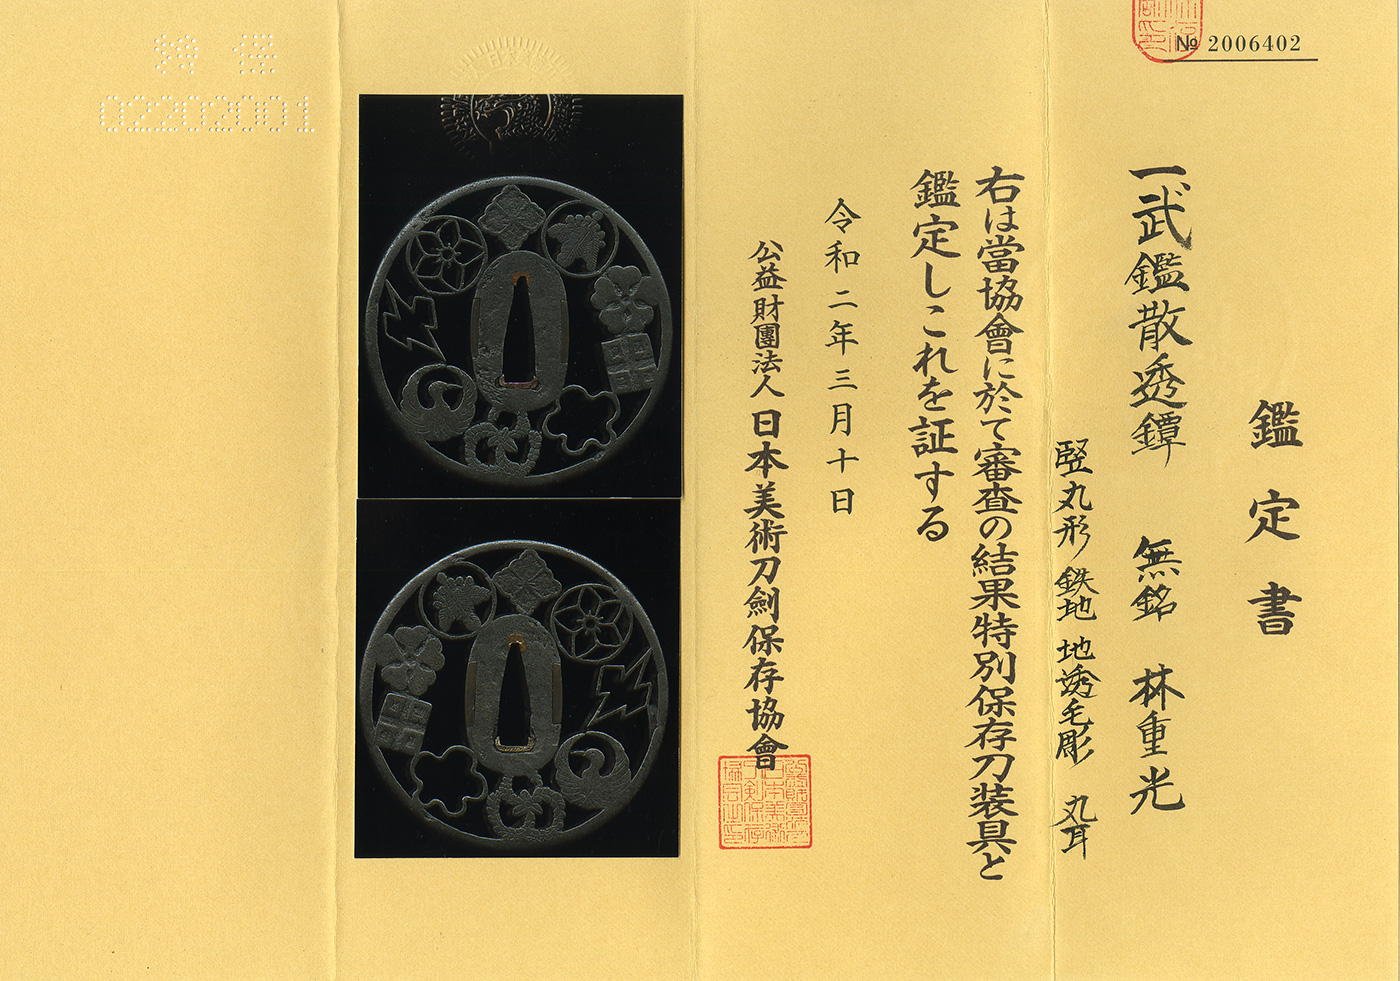 № 2006402
鑑定書
一、武鑑散透鐔 無銘 林重光
竪丸形 鉄地 地誘毛彫 丸耳
右は當協會に於て審査の結果特別保存刀装具と
鑑定しこれを証する
令和二年三月十日
公益財團法人 日本美術刀劍保存協會
02202001